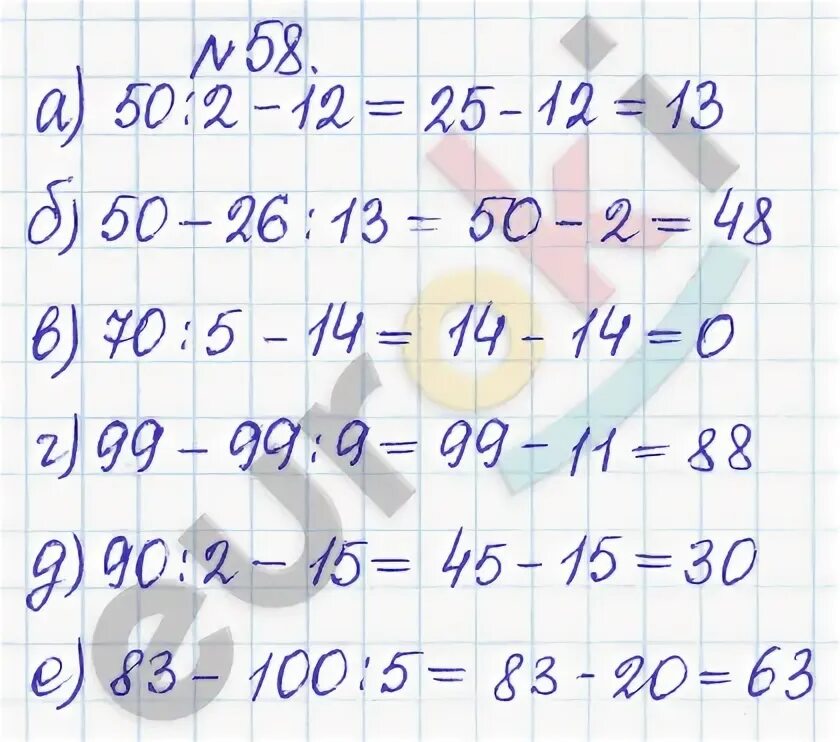 №58.
а) 50:2-12=25-12=13
б) 50-26:13=50-2=48
в) 70:5-14=14-14=0
г) 99-99:9=99-11=88
д) 90:2-15=45-15=30
е) 83-100:5=83-20=63
euroki